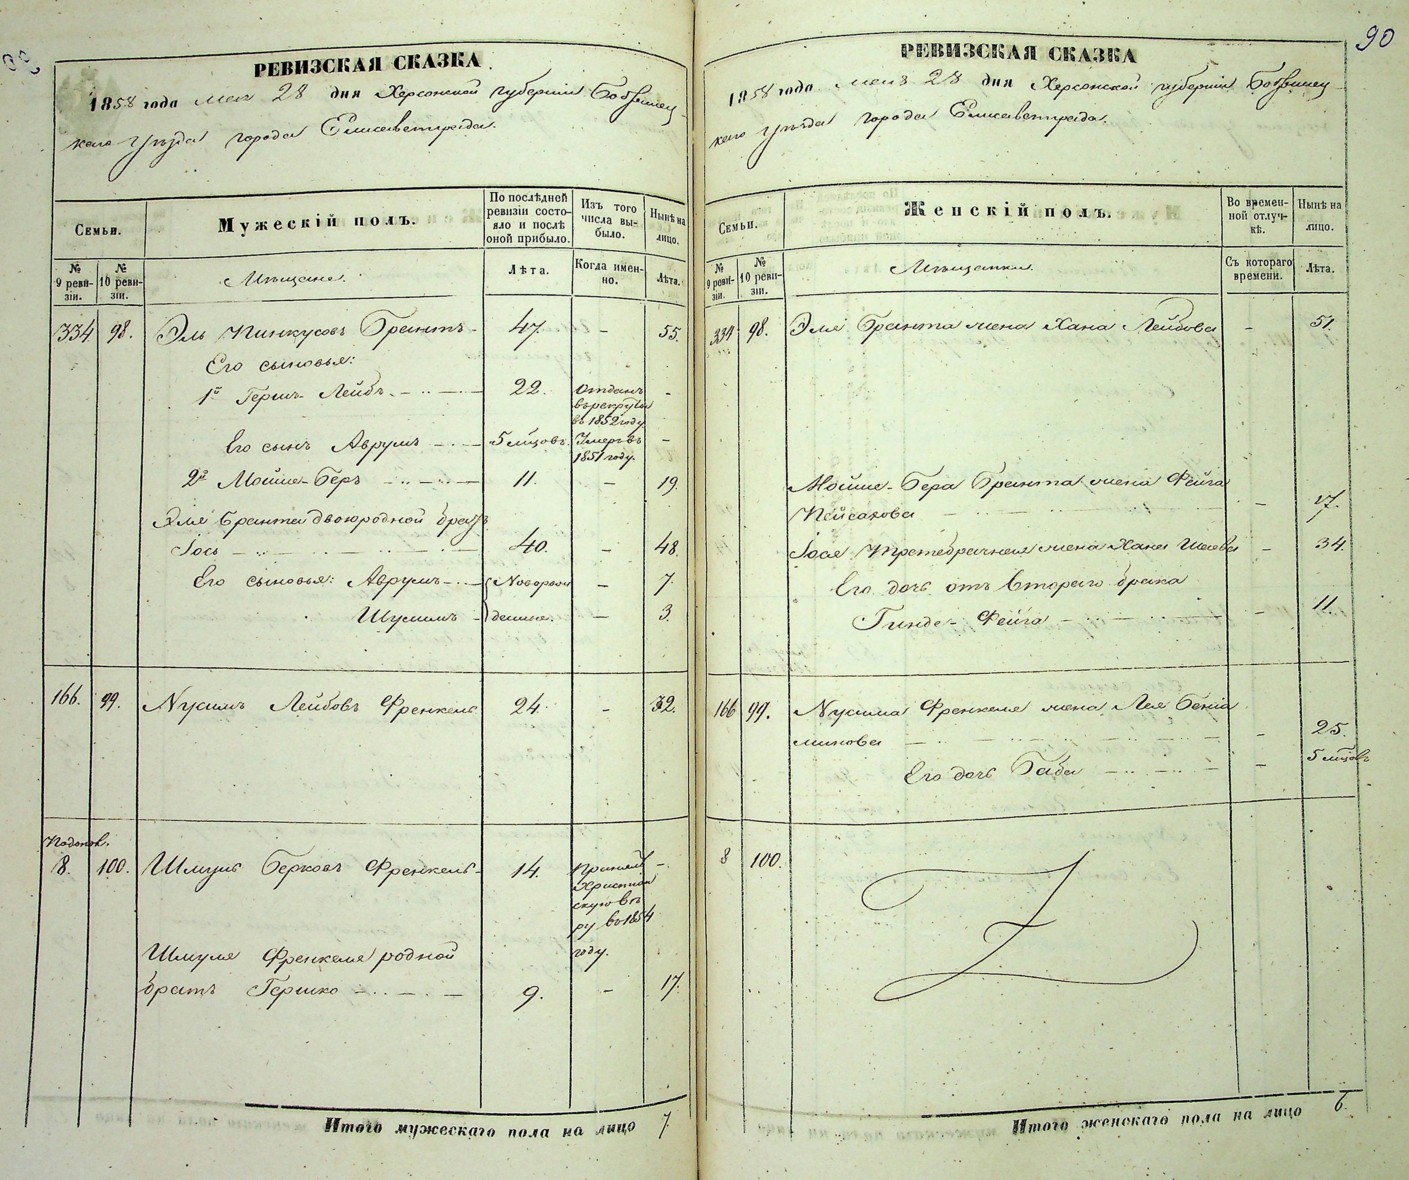 90
РЕВИЗСКАЯ СКАЗКА
1858 года мая 28 дня Херсонской губернiи Бобринец-
каго уѣзда города Елисаветграда.
Семьи.
Мужескiй полъ.
По послѣдней ревизiи состо-яло и послѣ оной прибыло.
Изъ того числа вы-было.
Нынѣ на лицо.
№ 9 реви-зiи.
№ 10 реви-зiи.
Мѣщане.
Лѣта.
Когда имен-но.
Лѣта.
334 98. Эль Пинкусовъ Брантъ 47. – 55.
Его сыновья:
1й Гершъ-Лейбъ 22. Отданъ въ рекруты въ 1852 году –
Его сынъ Аврумъ 5 мѣсяцовъ. Умеръ въ 1851 году. –
2й Мойше-Беръ 11. – 19.
Эля Бранта двоюродной братъ
Iось 40. – 48.
Его сыновья: Аврумъ Новорож – 7.
Шулимъ денные. – 3.
166. 99. Нусимъ Лейбовъ Френкель 24. – 32.
8. 100. Шмуль Берковъ Френкель 14. Принялъ Христиан скую вѣ ру въ 1854 году. –
Шмуля Френкеля родной
братъ Гершко 9. – 17.
Итого мужескаго пола на лицо 7
РЕВИЗСКАЯ СКАЗКА
1858 года мая 28 дня Херсонской губернiи Бобринец-
каго уѣзда города Елисаветграда.
Семьи.
Женскiй полъ.
Во времен-ной отлуч-кѣ.
Нынѣ на лицо.
№ 9 реви-зiи.
№ 10 реви-зiи.
Мѣщанки.
Съ котораго времени.
Лѣта.
334 98. Эля Бранта жена Хана Лейбова – 51.
Мойше-Бера Бранта жена Фейга
Пейсахова – 17.
Iося третебрачная жена Хана – 34.
Его дочь отъ втораго брака
Гинде-Фейга – 11.
166 99. Нусима Френкеля жена Лея Бенiа
минова – 25.
Его дочь Баба – 5 мѣсяцовъ
8 100.
Итого женскаго пола на лицо 6.